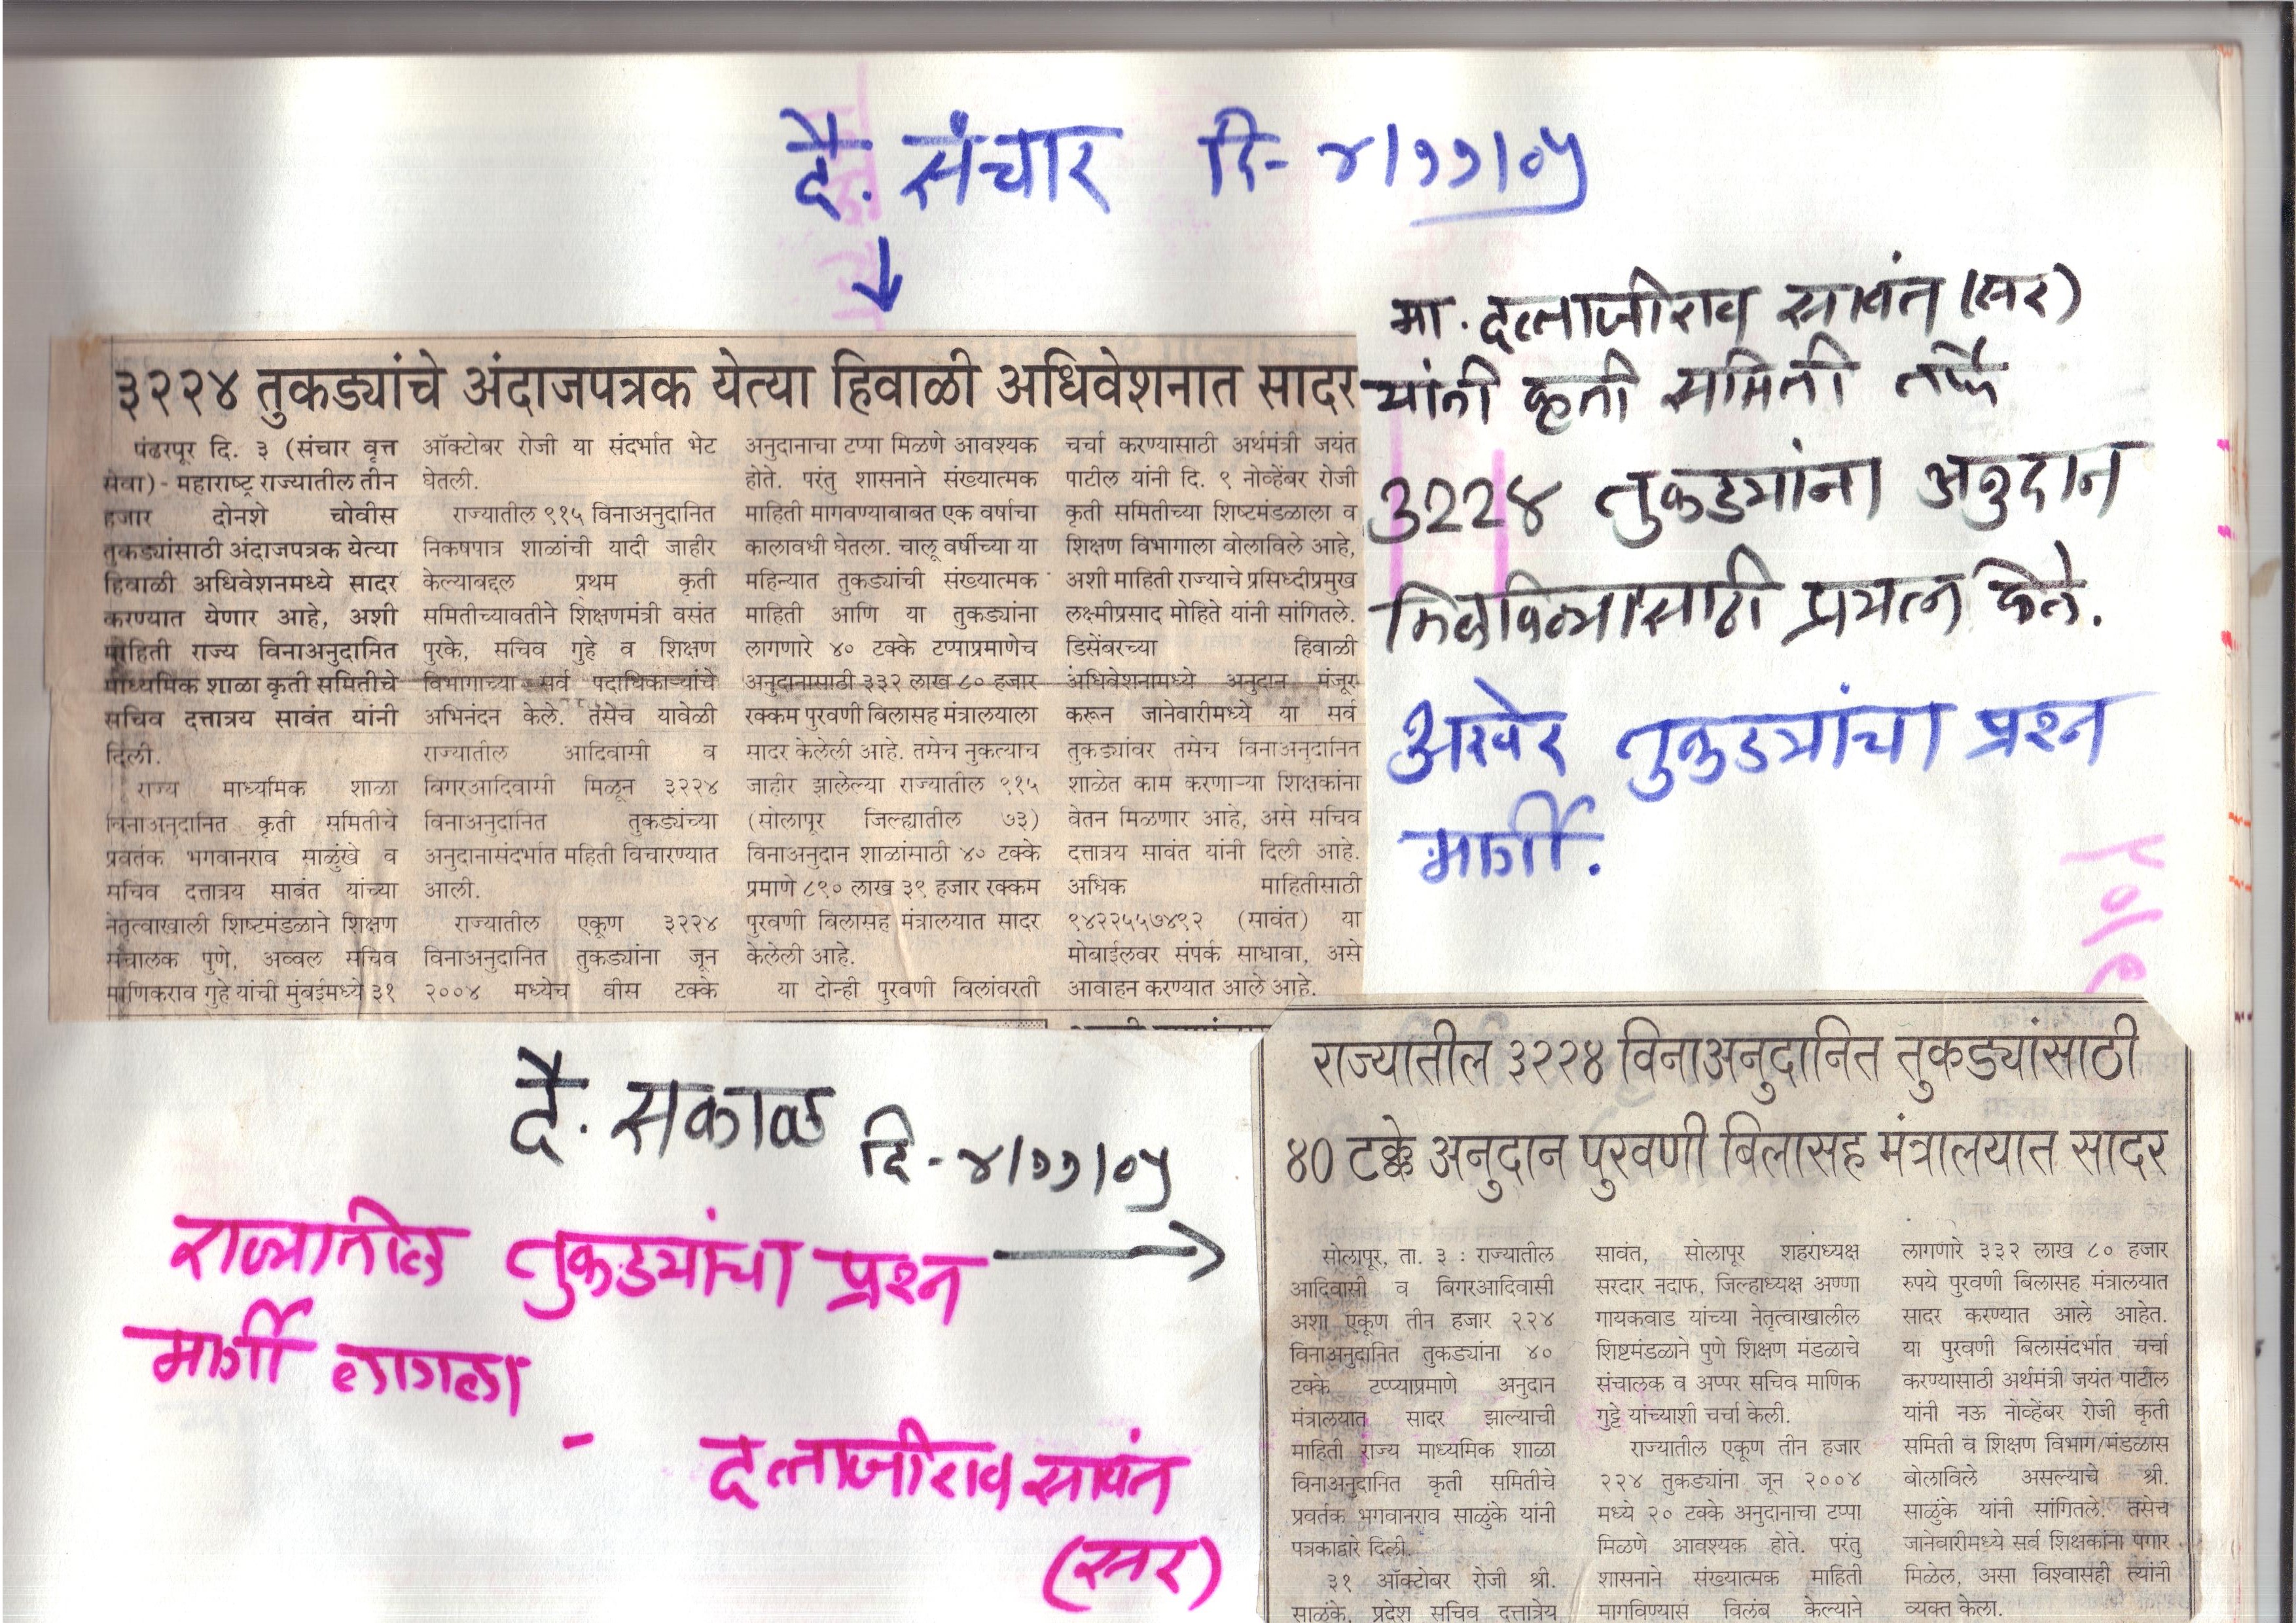 दै. संचार दि- ४/११/०५
मा. दत्ताजीराव सावंत (सर)
यांनी कृती समिती तर्फे
3224 तुकड्यांना अनुदान
मिळविण्यासाठी प्रयत्न केले.
अखेर तुकड्यांचा प्रश्न
मार्गी.
३२२४ तुकड्यांचे अंदाजपत्रक येत्या हिवाळी अधिवेशनात सादर
पंढरपूर दि. ३ (संचार वृत्त
सेवा) - महाराष्ट्र राज्यातील तीन
हजार दोनशे चोवीस
तुकड्यांसाठी अंदाजपत्रक येत्या
हिवाळी अधिवेशनमध्ये सादर
करण्यात येणार आहे, अशी
माहिती राज्य विनाअनुदानित
माध्यमिक शाळा कृती समितीचे
सचिव दत्तात्रय सावंत यांनी
दिली.
राज्य माध्यमिक शाळा
विनाअनुदानित कृती समितीचे
प्रवर्तक भगवानराव साळुंखे व
सचिव दत्तात्रय सावंत यांच्या
नेतृत्वाखाली शिष्टमंडळाने शिक्षण
संचालक पुणे, अव्वल सचिव
माणिकराव गुहे यांची मुंबईमध्ये ३१
ऑक्टोबर रोजी या संदर्भात भेट
घेतली.
राज्यातील ९१५ विनाअनुदानित
निकषपात्र शाळांची यादी जाहीर
केल्याबद्दल प्रथम कृती
समितीच्यावतीने शिक्षणमंत्री वसंत
पुरके, सचिव गुहे व शिक्षण
विभागाच्या सर्व पदाधिकाऱ्यांचे
अभिनंदन केले. तसेच यावेळी
राज्यातील आदिवासी व
बिगरआदिवासी मिळून ३२२४
विनाअनुदानित तुकड्यंच्या
अनुदानासंदर्भात महिती विचारण्यात
आली.
राज्यातील एकूण ३२२४
विनाअनुदानित तुकड्यांना जून
२००४ मध्येच वीस टक्के
अनुदानाचा टप्पा मिळणे आवश्यक
होते. परंतु शासनाने संख्यात्मक
माहिती मागवण्याबाबत एक वर्षाचा
कालावधी घेतला. चालू वर्षीच्या या
महिन्यात तुकड्यांची संख्यात्मक
माहिती आणि या तुकड्यांना
लागणारे ४० टक्के टप्पाप्रमाणेच
अनुदानासाठी ३३२ लाख ८० हजार
रक्कम पुरवणी बिलासह मंत्रालयाला
सादर केलेली आहे. तसेच नुकत्याच
जाहीर झालेल्या राज्यातील ९१५
(सोलापूर जिल्ह्यातील ७३)
विनाअनुदान शाळांसाठी ४० टक्के
प्रमाणे ८९० लाख ३९ हजार रक्कम
पुरवणी बिलासह मंत्रालयात सादर
केलेली आहे.
या दोन्ही पुरवणी बिलांवरती
चर्चा करण्यासाठी अर्थमंत्री जयंत
पाटील यांनी दि. ९ नोव्हेंबर रोजी
कृती समितीच्या शिष्टमंडळाला व
शिक्षण विभागाला बोलाविले आहे,
अशी माहिती राज्याचे प्रसिध्दीप्रमुख
लक्ष्मीप्रसाद मोहिते यांनी सांगितले.
डिसेंबरच्या हिवाळी
अधिवेशनामध्ये अनुदान मंजूर
करून जानेवारीमध्ये या सर्व
तुकड्यांवर तसेच विनाअनुदानित
शाळेत काम करणाऱ्या शिक्षकांना
वेतन मिळणार आहे, असे सचिव
दत्तात्रय सावंत यांनी दिली आहे.
अधिक माहितीसाठी
९४२२५५७४९२ (सावंत) या
मोबाईलवर संपर्क साधावा, असे
आवाहन करण्यात आले आहे.
दै. सकाळ दि- ४/११/०५
राज्यातील तुकड्यांचा प्रश्न
मार्गी लागला
- दत्ताजीराव सावंत
(सर)
राज्यातील ३२२४ विनाअनुदानित तुकड्यांसाठी
४० टक्के अनुदान पुरवणी बिलासह मंत्रालयात सादर
सोलापूर, ता. ३ : राज्यातील
आदिवासी व बिगरआदिवासी
अशा एकूण तीन हजार २२४
विनाअनुदानित तुकड्यांना ४०
टक्के टप्प्याप्रमाणे अनुदान
मंत्रालयात सादर झाल्याची
माहिती राज्य माध्यमिक शाळा
विनाअनुदानित कृती समितीचे
प्रवर्तक भगवानराव साळुंके यांनी
पत्रकाद्वारे दिली.
३१ ऑक्टोबर रोजी श्री.
साळुंके, प्रदेश सचिव दत्तात्रेय
सावंत, सोलापूर शहराध्यक्ष
सरदार नदाफ, जिल्हाध्यक्ष अण्णा
गायकवाड यांच्या नेतृत्वाखालील
शिष्टमंडळाने पुणे शिक्षण मंडळाचे
संचालक व अप्पर सचिव माणिक
गुट्टे यांच्याशी चर्चा केली.
राज्यातील एकूण तीन हजार
२२४ तुकड्यांना जून २००४
मध्ये २० टक्के अनुदानाचा टप्पा
मिळणे आवश्यक होते. परंतु
शासनाने संख्यात्मक माहिती
मागविण्यास विलंब केल्याने
लागणारे ३३२ लाख ८० हजार
रुपये पुरवणी बिलासह मंत्रालयात
सादर करण्यात आले आहेत.
या पुरवणी बिलासंदर्भात चर्चा
करण्यासाठी अर्थमंत्री जयंत पाटील
यांनी नऊ नोव्हेंबर रोजी कृती
समिती व शिक्षण विभाग/मंडळास
बोलाविले असल्याचे श्री.
साळुंके यांनी सांगितले. तसेच
जानेवारीमध्ये सर्व शिक्षकांना पगार
मिळेल, असा विश्वासही त्यांनी
व्यक्त केला.